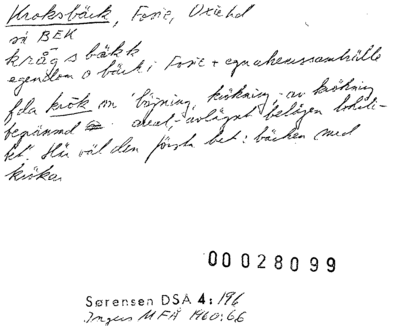 Kroksbäck, Fosie, Oxiehd
så BEK
krågsbäkk
egendom o bäck i Fosie + egnahemssamhälle
fda krök m 'böjning, krökning - av krökning
begränsad areal, - avlägset belägen lokali-
tet. Här väl den första bet: bäcken med
krökar
00028099
Sørensen DSA 4: 196
Ingers MFÅ 1960:66